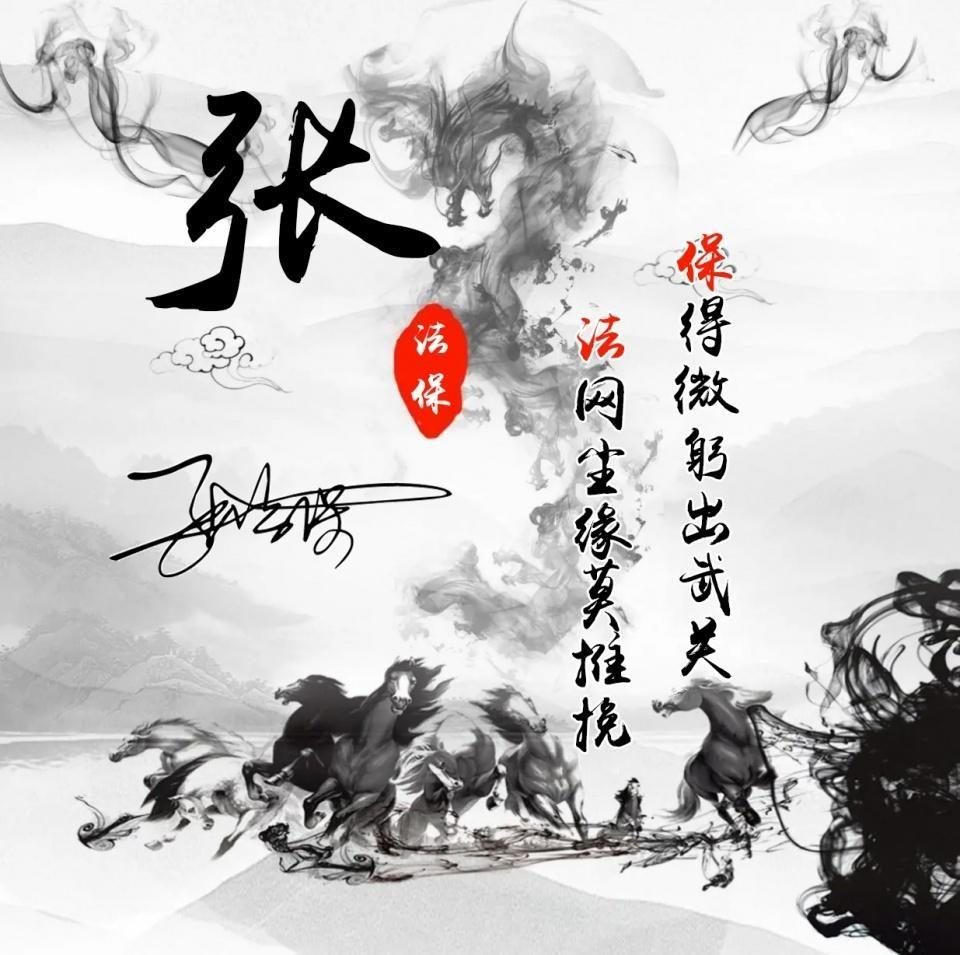 张
法保
保得微躬出武关
法网尘缘莫推挽